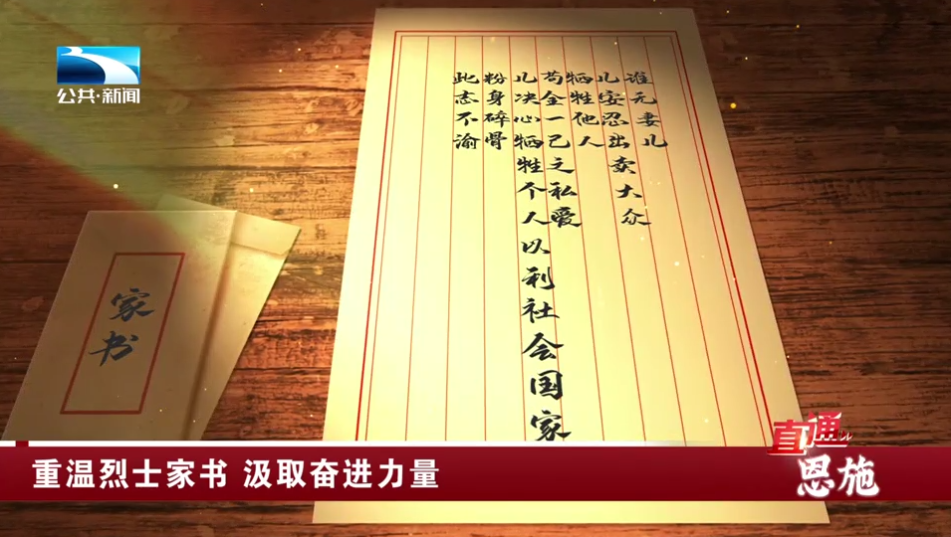 公共·新闻
谁无妻儿
儿安忍出卖大众
牺牲他人
苟全一己之私爱
儿决心牺牲个人以利社会国家
粉身碎骨
此志不渝
家书
直通
恩施
重温烈士家书 汲取奋进力量